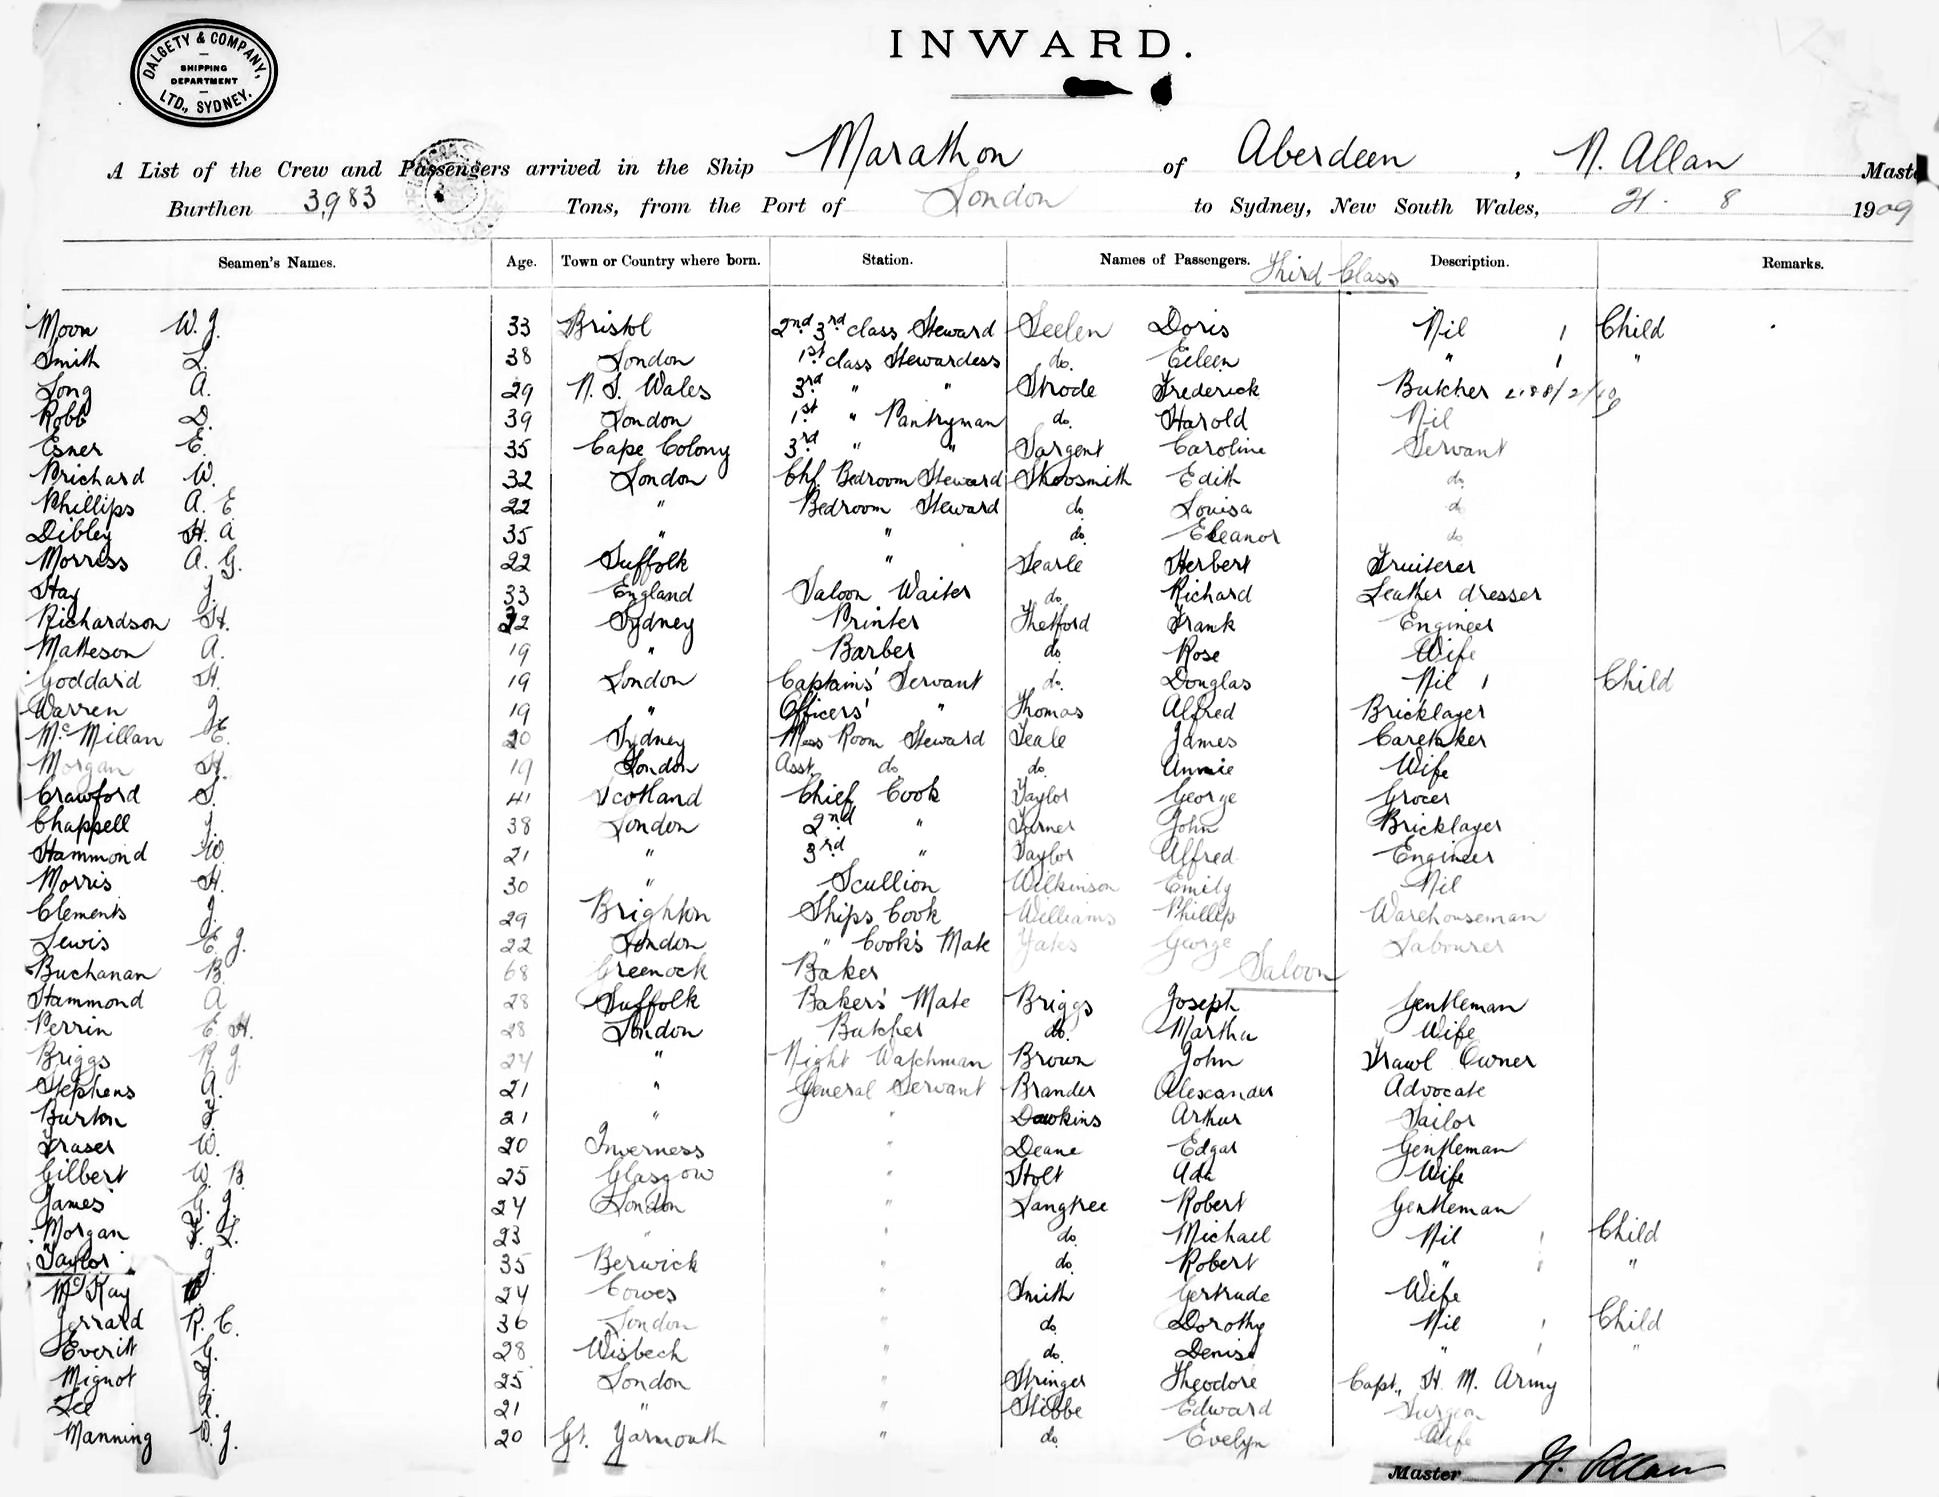 DALGETY & COMPANY,
SHIPPING
DEPARTMENT
LTD., SYDNEY.
INWARD.
A List of the Crew and Passengers arrived in the Ship Marathon of Aberdeen, N. Allan Master
Burthen 3,983 Tons, from the Port of London to Sydney, New South Wales, 21. 8 1909
Seamen's Names. Age. Town or Country where born. Station. Names of Passengers. Description. Remarks.
Third Class
Moon W. J. 33 Bristol 2nd 3rd class Steward Seelen Doris Nil 1 Child
Smith L. 38 London 1st class Stewardess do. Eileen " 1 "
Long A. 29 N. S. Wales 3rd " " Strode Frederick Butcher
Robb D. 39 London 1st " Pantryman do. Harold Nil
Esner E. 35 Cape Colony 3rd " " Sargent Caroline Servant
Prichard W. 32 London Chf. Bedroom Steward Shoosmith Edith do.
Phillips A. E 22 " Bedroom Steward do. Louisa do
Dibley H. A 35 " " do. Eleanor do
Morriss A. G. 22 Suffolk " Searle Herbert Fruiterer
Hay J. 33 England Saloon Waiter do. Richard Leather dresser
Richardson H. 22 Sydney Printer Thetford Frank Engineer
Matteson A. 19 " Barber do. Rose Wife
Goddard H. 19 London Captains' Servant do. Douglas Nil 1 Child
Warren J. 19 " Officers' " Thomas Alfred Bricklayer
McMillan E. 20 Sydney Mess Room Steward Teale James Caretaker
Morgan H. 19 London Asst. do. do. Annie Wife
Crawford S. 41 Scotland Chief Cook Taylor George Grocer
Chappell J. 38 London 2nd " Turner John Bricklayer
Hammond W. 21 " 3rd " Taylor Alfred Engineer
Morris H. 30 " Scullion Wilkinson Emily Nil
Clements J. 29 Brighton Ships Cook Williams Phillip Warehouseman
Lewis E. J. 22 London " Cook's Mate Yates George Labourer
Buchanan B. 68 Greenock Baker Saloon
Hammond A 28 Suffolk Bakers' Mate Briggs Joseph Gentleman
Perrin E. H. 28 London Butcher do. Martha Wife
Briggs R. J. 24 " Night Watchman Brown John Trawl Owner
Stephens A. 21 " General Servant Brander Alexander Advocate
Burton F. 21 " " Dawkins Arthur Tailor
Fraser W. 20 Inverness " Deane Edgar Gentleman
Gilbert W. B. 25 Glasgow " Stolt Ada Wife
James C. J. 24 London " Langtree Robert Gentleman
Morgan F. L. 23 " " do. Michael Nil 1 Child
Taylor J. 35 Berwick " do. Robert " 1 "
McKay 24 Cowes " Smith Gertrude Wife
Jerrard R. C. 36 London " do. Dorothy Nil 1 Child
Everitt G. 28 Wisbech " do. Denise " 1 "
Mignot 25 London " Stringer Theodore Capt., H. M. Army
Lee 21 " " Stibbe Edward Surgeon
Manning J. 20 Gt. Yarmouth " do. Evelyn Wife
Master N. Allan